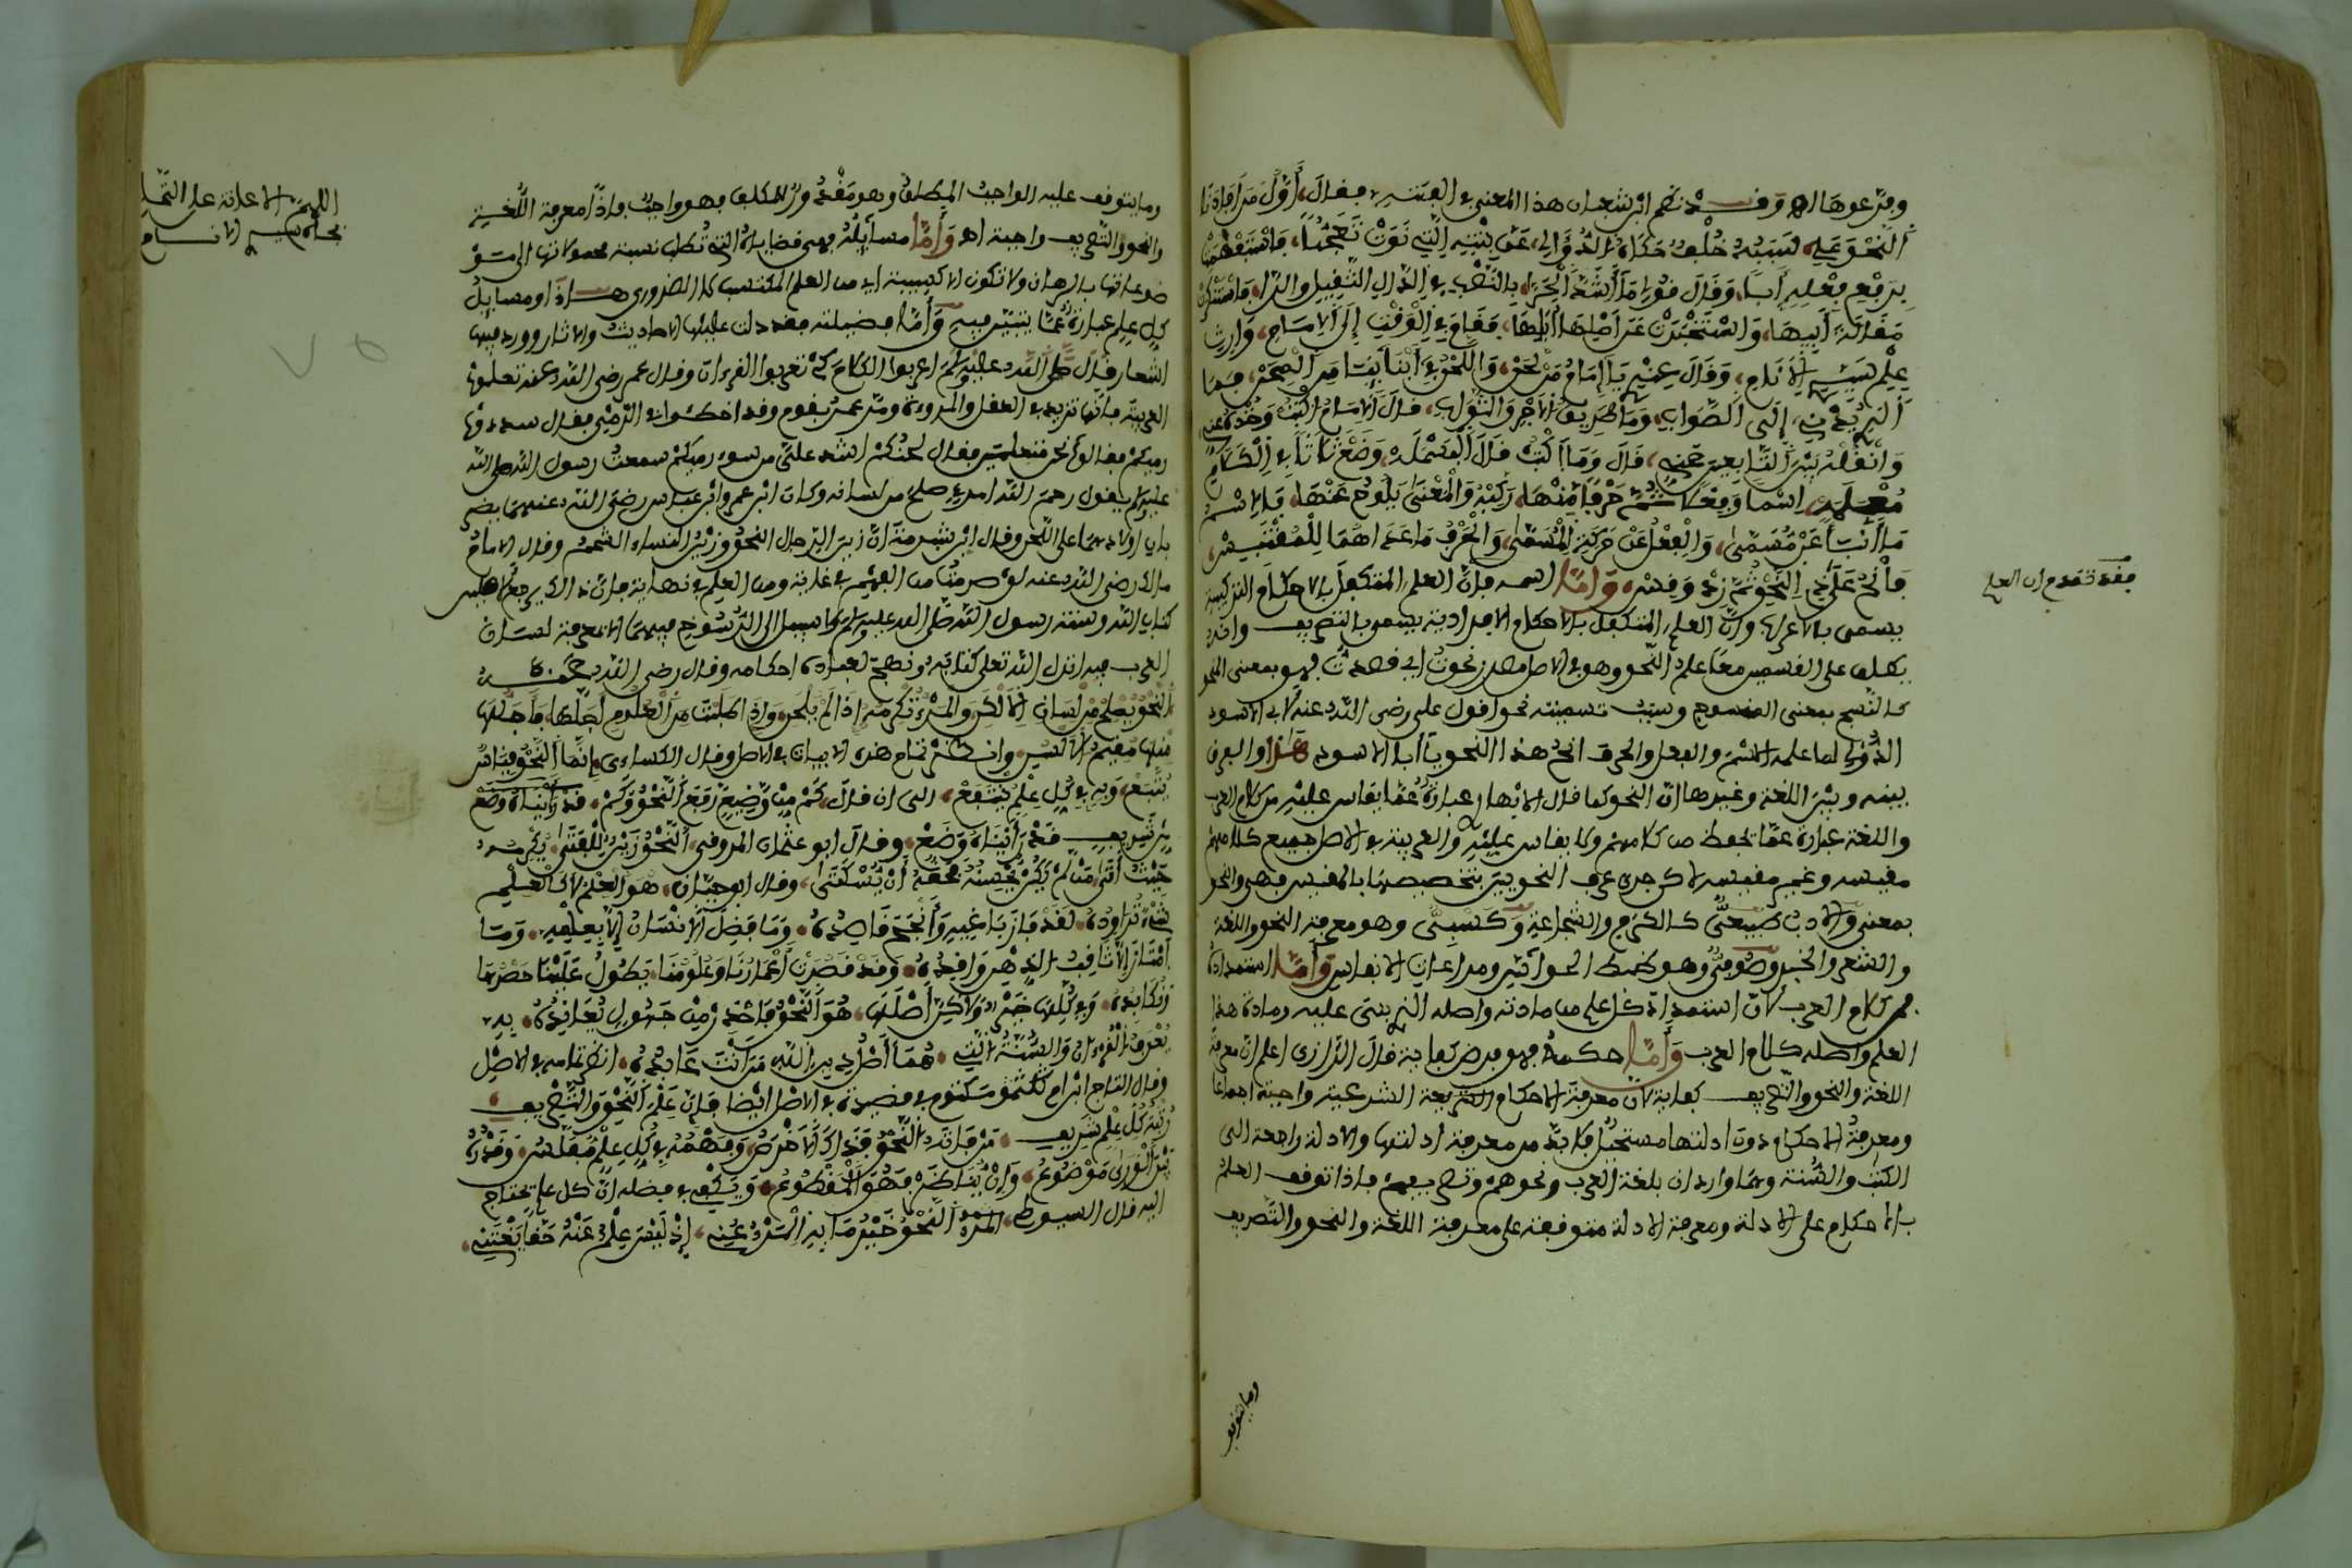 وفرعوها اهـ وقد نظم ابن شعبان هذا المعنى في الفيته فقال أول من أفادنا
النحو علي لسببه خلف حكاه الدؤلي عن بنته التي نوت تعجبا فاستفهمت
برفع فعله أبا وقال قولي ما أشد الحرا بالنصب في الدال الثقيل والرا فاستنكرت
مقالة أبيها واستخبرت عن أصلها أباها فجاء في الوقت إلى الامام وارث
علم سيد الأنام وقال عني يا إمام من لحن واللحن في أبنائنا من المحن فما
الذي يهدي إلى الصواب وما طريق الأجر والثواب قال الامام اكتب وخذه عني
وانقله بين التابعين عني قال وما أكتب قال البسمله وضع ثلاثا في الكلام
معمله اسما وفعلا ثم حرفا منها ركبه والمعنى يلوح عنها فالاسم
ما أنبأ عن مسمى والفعل عن حركة المسمى والحرف ما عداهما للمقتبس
فانح على ذا النحو ثم زد وقس وأما اسمه فان العلم المتكفل بالاحكام التركيبية
يسمى بالاعراب وان العلم المتكفل بالاحكام الافرادية يسمى بالتصريف وانه
يطلق على القسمين معا علم النحو وهو في الاصل مصدر نحوت اي قصدت فهو بمعنى المنحو
كالنسج بمعنى المنسوج وسبب تسميته نحوا قول علي رضي الله عنه لابي الاسود
الدؤلي لما علمه الاسم والفعل والحرف انح هذا النحو يا أبا الاسود هذا والفرق
بينه وبين اللغة وغيرها ان النحو كما قال الابهار عبارة عما يقاس عليه من كلام العرب
واللغة عبارة عما يحفظ من كلامهم ولا يقاس عليه والعربية في الاصل جميع كلامهم
مقيسه وغير مقيسه لاكن جرى عرف النحويين بتخصيصها بالمقيس فهي والنحو
بمعنى والادب طبيعي كالكرم والشجاعة وكسبي وهو معرفة النحو واللغة
والشعر والخبر وصوفي وهو ضبط الحواس ومراعات الانفاس وأما استمداده
فمن كلام العرب لان استمداد كل علم من مادته واصله الذي يبنى عليه ومادة هذا
العلم واصله كلام العرب وأما حكمه فهو فرض كفاية قال الرازي اعلم ان معرفة
اللغة والنحو والتصريف كفاية لان معرفة الاحكام الشرعية واجبة اجماعا
ومعرفة الاحكام دون ادلتها مستحيل فلا بد من معرفة ادلتها والادلة راجعة الى
الكتب والسنة وهما واردان بلغة العرب ونحوهم وتصريفهم فاذا توقف العلم
بالاحكام على الادلة ومعرفة الادلة متوقفة على معرفة اللغة والنحو والتصريف
وما يتوقف
فقد تقدم ان العلم
وما يتوقف عليه الواجب المطلق وهو مقدور للمكلف فهو واجب فاذا معرفة اللغة
والنحو والتصريف واجبة اهـ وأما مسائله فهي قضاياه التي تطلب نسبة محمولاتها الى مو
ضوعاتها بالبرهان ولا تكون الا كسبية اي من العلم المكتسب لا الضروري هذا ومسايل
كل علم عبارة عما يتبين فيه وأما فضيلته فقد دلت عليها الاحاديث والاثار وورد فيها
اشعار قال صلى الله عليه وسلم اعربوا الكلام كي تعربوا القرءان وقال عمر رضي الله عنه تعلموا
العربية فانها تزيد في العقل والمروءة ومر عمر بقوم وقد اخطئوا في الرمي فقال سددوا
رميكم فقالوا نحن متعلمين فقال لحنكم اشد علي من سوء رميكم سمعت رسول الله صلى الله
عليه وسلم يقول رحم الله امرءا اصلح من لسانه وكان ابن عمر وابن عباس رضي الله عنهما يضر
بان اولادهما على اللحن وقال ابن شبرمة ان زين الرجال النحو وزين النساء الشحم وقال الامام
مالك رضي الله عنه لو صرفنا من الفهم في غاية ومن العلم في نهاية فان ذلك يرجع لاصلين
كتاب الله وسنة رسول الله صلى الله عليه وسلم ولا سبيل الى الرسوخ فيهما الا بمعرفة لسان
العرب فبه انزل الله تعلى كتابه ونهج لعباده احكامه وقال رضي الله
النحو يصلح من لسان الألكن والمرء تكرمه إذا لم يلحن وإذا طلبت من العلوم أجلها فأجلها
منها مقيم الألسن وانظر تمام هذه الابيات في الاصل وقال الكساءي إنما النحو قياس
يتبع وبه في كل علم ينتفع الى ان قال كم من وضيع رفع النحو وكم قد رأيناه وضع
من شريف قد رأيناه وضع وقال ابو عثمان المروقي النحو زين للفتى يكرمه
حيث أتى من لم يكن يحسنه فحقه أن يسكتا وقال ابو حيان هو العلم لا كالعلم
شيء تراوده لقد فاز باغيه وأنجح قاصده وما فضل الإنسان إلا بعلمه وما
امتاز إلا ثاقب الذهن واقده وقد قصرت أعمارنا وعلومنا يطول علينا حصرها
ونكابده وفي كلها خير ولاكن أصلها هو النحو فاحذر من جهول يعانده به
يعرف القرءان والسنة التي هما أصل دين الله من أنت عابده انظر تمامه في الاصل
وقال التاج ابن ام مكتوم في قصيدة في الاصل ايضا فإن علم النحو والتصريف
زينة كل علم شريف من فاته النحو فذاك الأخرس وفهمه في كل علم مفلس وقدره
بين الورى موضوع وإن يناظر فهو المقطوع ويكفي في فضله ان كل علم يحتاج
اليه قال السيوطي النحو خير ما به المرء عني إذ ليس علم عنه حقا يغتني
اللهم الاعانة على التمام
بجاه سيد الانام